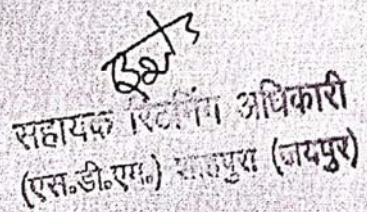 सहायक रिटर्निंग अधिकारी
(एस.डी.एम.) शाहपुरा (जयपुर)